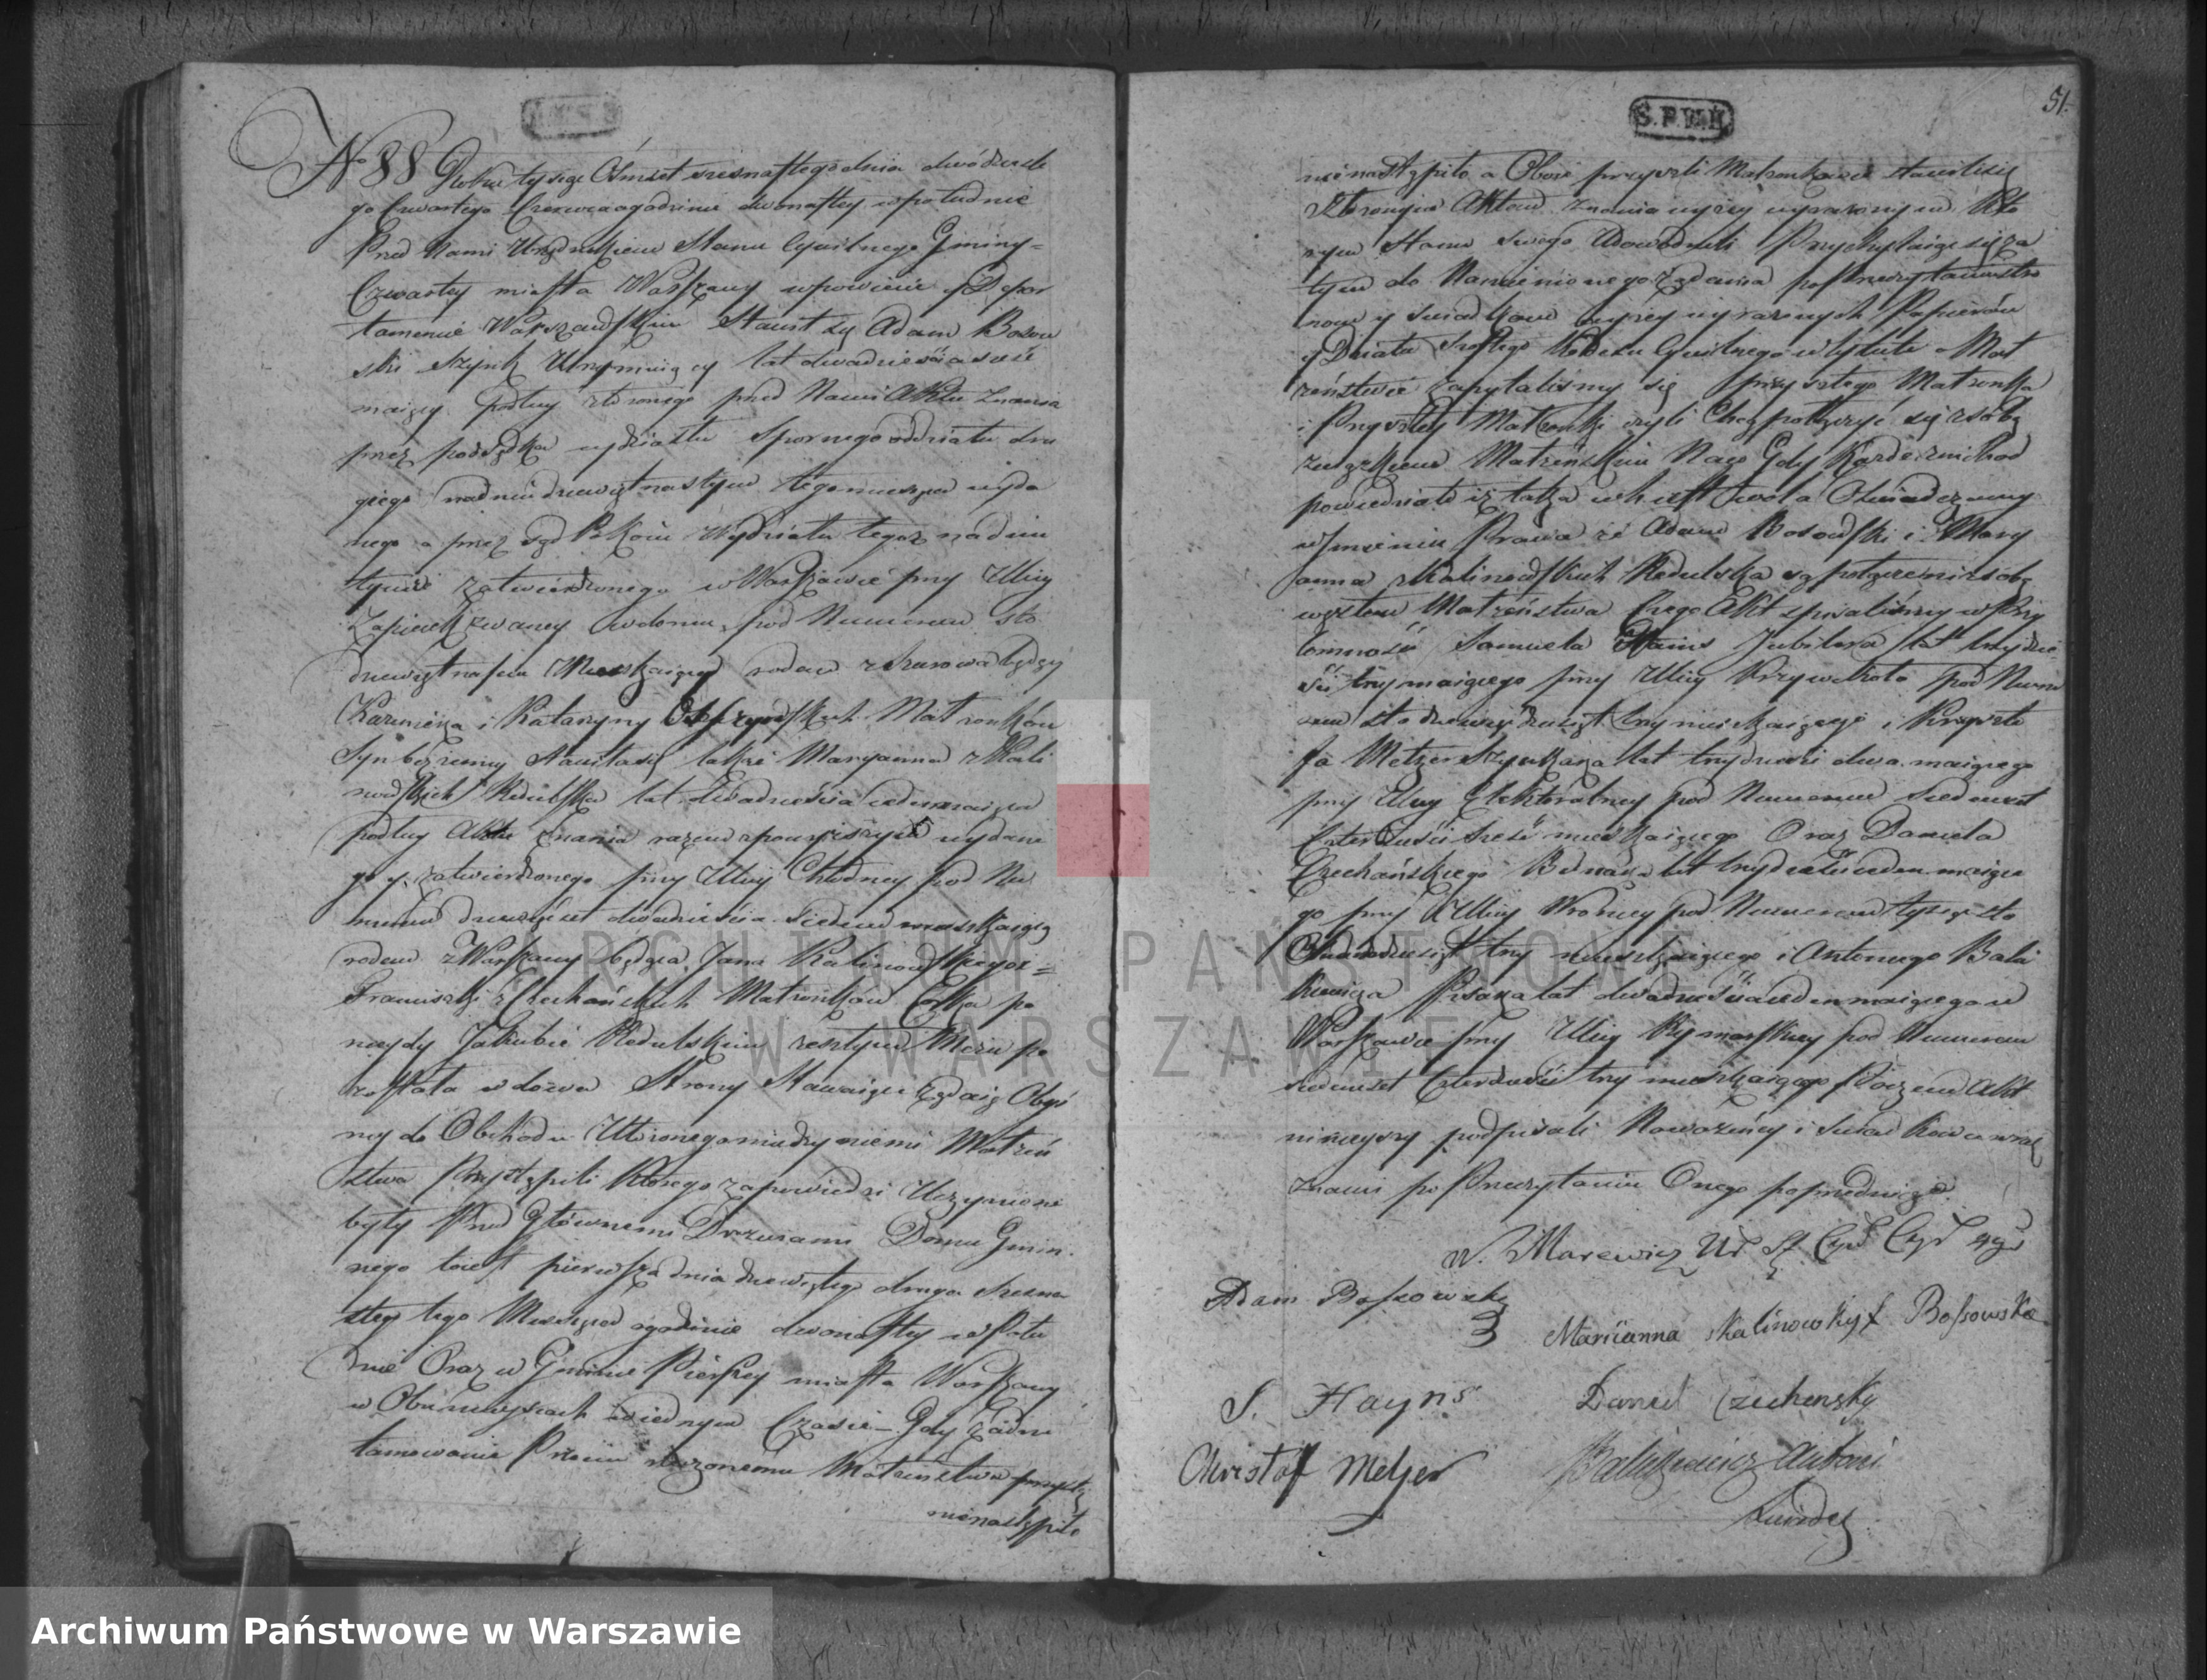 No 88 Roku tysiąc Ośmset szesnastego dnia dwódzieste
go Czwartego Czerwca o godzinie dwunastey w południe
Przed Nami Urzędnikiem Stanu Cywilnego Gminy
Czwartey miasta Warszawy w powiecie y Depar
tamencie Warszawskim Stawił się Adam Bosow
ski Szynk Utrzymuiący lat dwadzieścia sześć
maiący podług złożonego przed Nami Aktu Znania
przez podsędka wydziału Spornego oddziału dru
giego na dniu dziewiętnastym tego miesiąca wyda
nego a przez sąd Pokoiu Wydziału tegoż na dniu
tymże zatwierdzonego w Warszawie przy Ulicy
Zapiecek zwaney w domu pod Numerem sto
dziewiętnastu Mieszkaiący rodem z będący
Kazimierza i Katarzyny Małżonków
Syn Stawiła się także Maryanna z Kali
nowskich Redulska lat dwadzieścia ieden maiąca
podług Aktu Znania razem z powyższym wydane
go y zatwierdzonego przy Ulicy Chłodney pod Nu
merem dziewięćset dwadzieścia siedem mieszkaiąca
rodem z Warszawy będąca Jana Kalinowskiego i
Franciszki z Czechańskich Małżonków Córka po
niegdy Jakubie Redulskim zeszłym Mężu po
zostałą wdowa Strony Stawaiące żądaią Abyś
my do Obchodu Ułożonego między niemi Małżeń
stwa Przystąpili Którego zapowiedzi Uczynione
były Przed Głównemi Drzwiami Domu Gmin
nego to iest pierwsza dnia dziewiątego druga szesna
stego tego Miesiąca o godzinie dwunastey w Połu
dnie Oraz w Gminie Pierszey miasta Warszawy
w Obu mieyscach w iednym Czasie Gdy żadne
tamowanie Przeciw rzeczonemu Małżeństwu
nienastąpiło
S.P.W.K
51.
nienastąpiło a Oboie przyszli Małżonkowie stawili się
złożonym Aktem Znania wyżey wyrażonym Któ
rym Stanu swego Udowodnili Przychylaiąc się za
tym do Namienionego żądania po Przeczytaniu stro
nom y świadkom wyżey wyrażonych Papierów
y Działu Szóstego Kodexu Cywilnego w tytule o Mał
żeństwie zapytaliśmy się przyszłego Małżonka
i Przyszłey Małżonki czyli Chcą połączyć się z sobą
związkiem Małżeńskim Na co Gdy Każde z nich od
powiedziało iż taka ich iest wola Oświadczamy
w Imieniu Prawa że Adam Bosowski i Mary
anna z Kalinowskich Redulska są połączeni z sobą
węzłem Małżeństwa Czego Akt spisaliśmy w Przy
tomności Samuela Hains Jubilera lat trzydzie
ści trzy maiącego przy Ulicy Krzywekoło pod Nume
rem sto dziewięćdziesiąt trzy mieszkaiącego i Krzyszto
fa Metzer Szynkarza lat trzydzieści dwa maiącego
przy Ulicy Elektoralney pod Numerem Siedmset
Czterdzieści sześć mieszkaiącego Oraz Daniela
Czechańskiego Bednarza lat trzydzieści ieden maiące
go przy Ulicy Wroniey pod Numerem tysiąc sto
trzy mieszkaiącego i Antoniego Bali
kiewicza Pisarza lat dwadzieścia ieden maiącego w
Warszawie przy Ulicy Rymarskiey pod Numerem
siedmset Czterdzieści trzy mieszkaiącego Poczem Akt
ninieyszy podpisali Nowożeńcy i świadkowie wraz
z nami po Przeczytaniu Onego poprzedniczo
W. Marewicz Ur St Cyw
Adam Bossowski
Mariianna Kalinowskych Bossowska
S. Hayns
Daniel Czechensky
Christof Metzer
Balikiewicz Antoni
Świadek
ARCHIWUM PAŃSTWOWE
W WARSZAWIE
Archiwum Państwowe w Warszawie